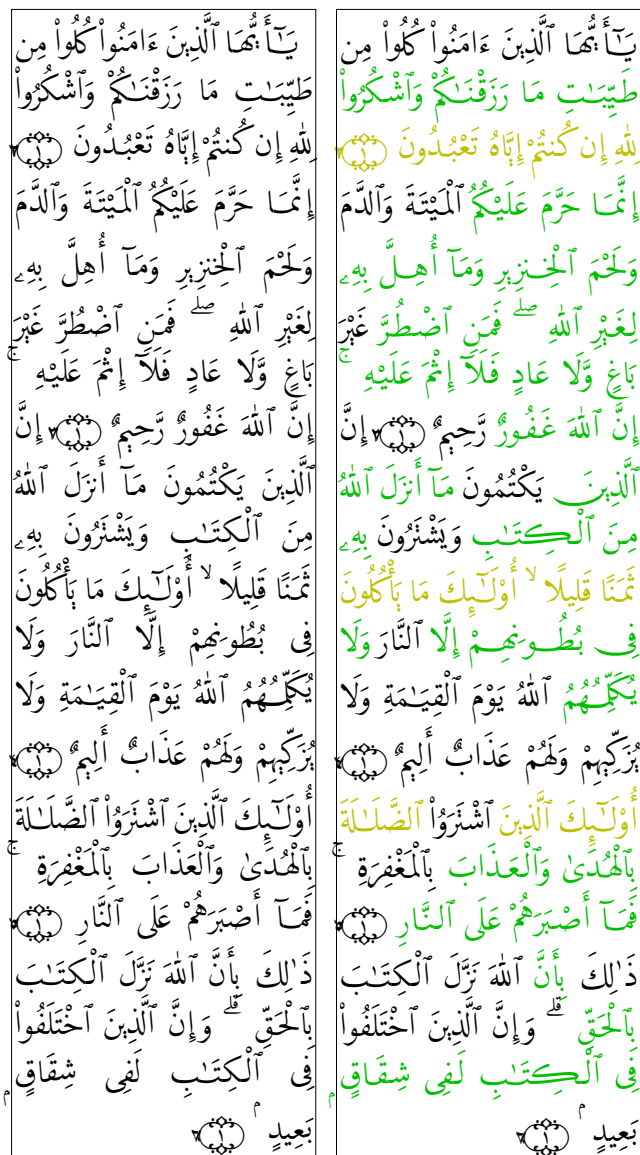 يَـٰٓأَيُّهَا ٱلَّذِينَ ءَامَنُوا۟ كُلُوا۟ مِن
طَيِّبَـٰتِ مَا رَزَقْنَـٰكُمْ وَٱشْكُرُوا۟
لِلَّهِ إِن كُنتُمْ إِيَّاهُ تَعْبُدُونَ ۝١
إِنَّمَا حَرَّمَ عَلَيْكُمُ ٱلْمَيْتَةَ وَٱلدَّمَ
وَلَحْمَ ٱلْخِنزِيرِ وَمَآ أُهِلَّ بِهِۦ
لِغَيْرِ ٱللَّهِ ۖ فَمَنِ ٱضْطُرَّ غَيْرَ
بَاغٍ وَلَا عَادٍ فَلَآ إِثْمَ عَلَيْهِ ۚ
إِنَّ ٱللَّهَ غَفُورٌ رَّحِيمٌ ۝١ إِنَّ
ٱلَّذِينَ يَكْتُمُونَ مَآ أَنزَلَ ٱللَّهُ
مِنَ ٱلْكِتَـٰبِ وَيَشْتَرُونَ بِهِۦ
ثَمَنًا قَلِيلًا ۙ أُو۟لَـٰٓئِكَ مَا يَأْكُلُونَ
فِى بُطُونِهِمْ إِلَّا ٱلنَّارَ وَلَا
يُكَلِّمُهُمُ ٱللَّهُ يَوْمَ ٱلْقِيَـٰمَةِ وَلَا
يُزَكِّيهِمْ وَلَهُمْ عَذَابٌ أَلِيمٌ ۝١
أُو۟لَـٰٓئِكَ ٱلَّذِينَ ٱشْتَرَوُا۟ ٱلضَّلَـٰلَةَ
بِٱلْهُدَىٰ وَٱلْعَذَابَ بِٱلْمَغْفِرَةِ ۚ
فَمَآ أَصْبَرَهُمْ عَلَى ٱلنَّارِ ۝١
ذَٰلِكَ بِأَنَّ ٱللَّهَ نَزَّلَ ٱلْكِتَـٰبَ
بِٱلْحَقِّ ۗ وَإِنَّ ٱلَّذِينَ ٱخْتَلَفُوا۟
فِى ٱلْكِتَـٰبِ لَفِى شِقَاقٍۭ
بَعِيدٍ ۝١
يَـٰٓأَيُّهَا ٱلَّذِينَ ءَامَنُوا۟ كُلُوا۟ مِن
طَيِّبَـٰتِ مَا رَزَقْنَـٰكُمْ وَٱشْكُرُوا۟
لِلَّهِ إِن كُنتُمْ إِيَّاهُ تَعْبُدُونَ ۝١
إِنَّمَا حَرَّمَ عَلَيْكُمُ ٱلْمَيْتَةَ وَٱلدَّمَ
وَلَحْمَ ٱلْخِنزِيرِ وَمَآ أُهِلَّ بِهِۦ
لِغَيْرِ ٱللَّهِ ۖ فَمَنِ ٱضْطُرَّ غَيْرَ
بَاغٍ وَلَا عَادٍ فَلَآ إِثْمَ عَلَيْهِ ۚ
إِنَّ ٱللَّهَ غَفُورٌ رَّحِيمٌ ۝١ إِنَّ
ٱلَّذِينَ يَكْتُمُونَ مَآ أَنزَلَ ٱللَّهُ
مِنَ ٱلْكِتَـٰبِ وَيَشْتَرُونَ بِهِۦ
ثَمَنًا قَلِيلًا ۙ أُو۟لَـٰٓئِكَ مَا يَأْكُلُونَ
فِى بُطُونِهِمْ إِلَّا ٱلنَّارَ وَلَا
يُكَلِّمُهُمُ ٱللَّهُ يَوْمَ ٱلْقِيَـٰمَةِ وَلَا
يُزَكِّيهِمْ وَلَهُمْ عَذَابٌ أَلِيمٌ ۝١
أُو۟لَـٰٓئِكَ ٱلَّذِينَ ٱشْتَرَوُا۟ ٱلضَّلَـٰلَةَ
بِٱلْهُدَىٰ وَٱلْعَذَابَ بِٱلْمَغْفِرَةِ ۚ
فَمَآ أَصْبَرَهُمْ عَلَى ٱلنَّارِ ۝١
ذَٰلِكَ بِأَنَّ ٱللَّهَ نَزَّلَ ٱلْكِتَـٰبَ
بِٱلْحَقِّ ۗ وَإِنَّ ٱلَّذِينَ ٱخْتَلَفُوا۟
فِى ٱلْكِتَـٰبِ لَفِى شِقَاقٍۭ
بَعِيدٍ ۝١